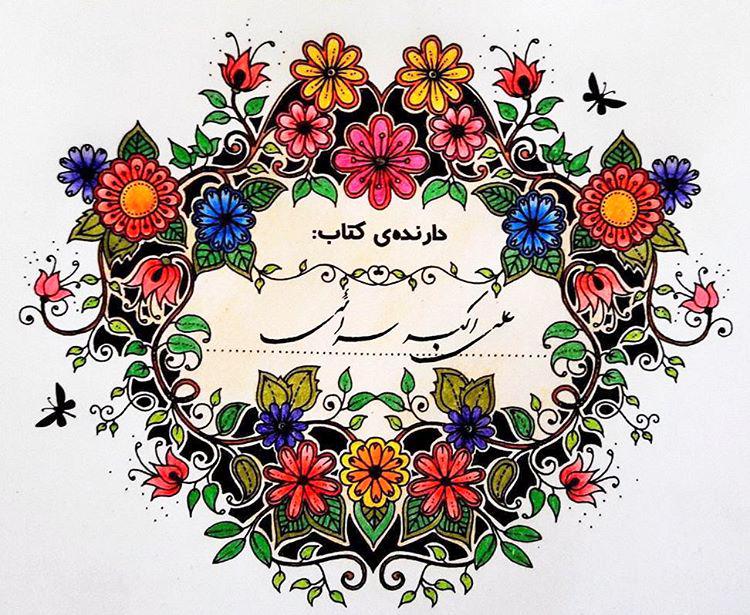 دارنده‌ی کتاب:
علی اکبر سرائی